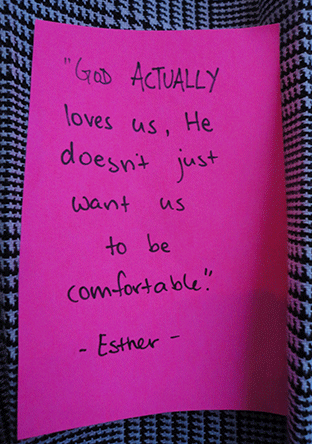 "GOD ACTUALLY
loves us, He
doesn't just
want us
to be
comfortable."
- Esther -